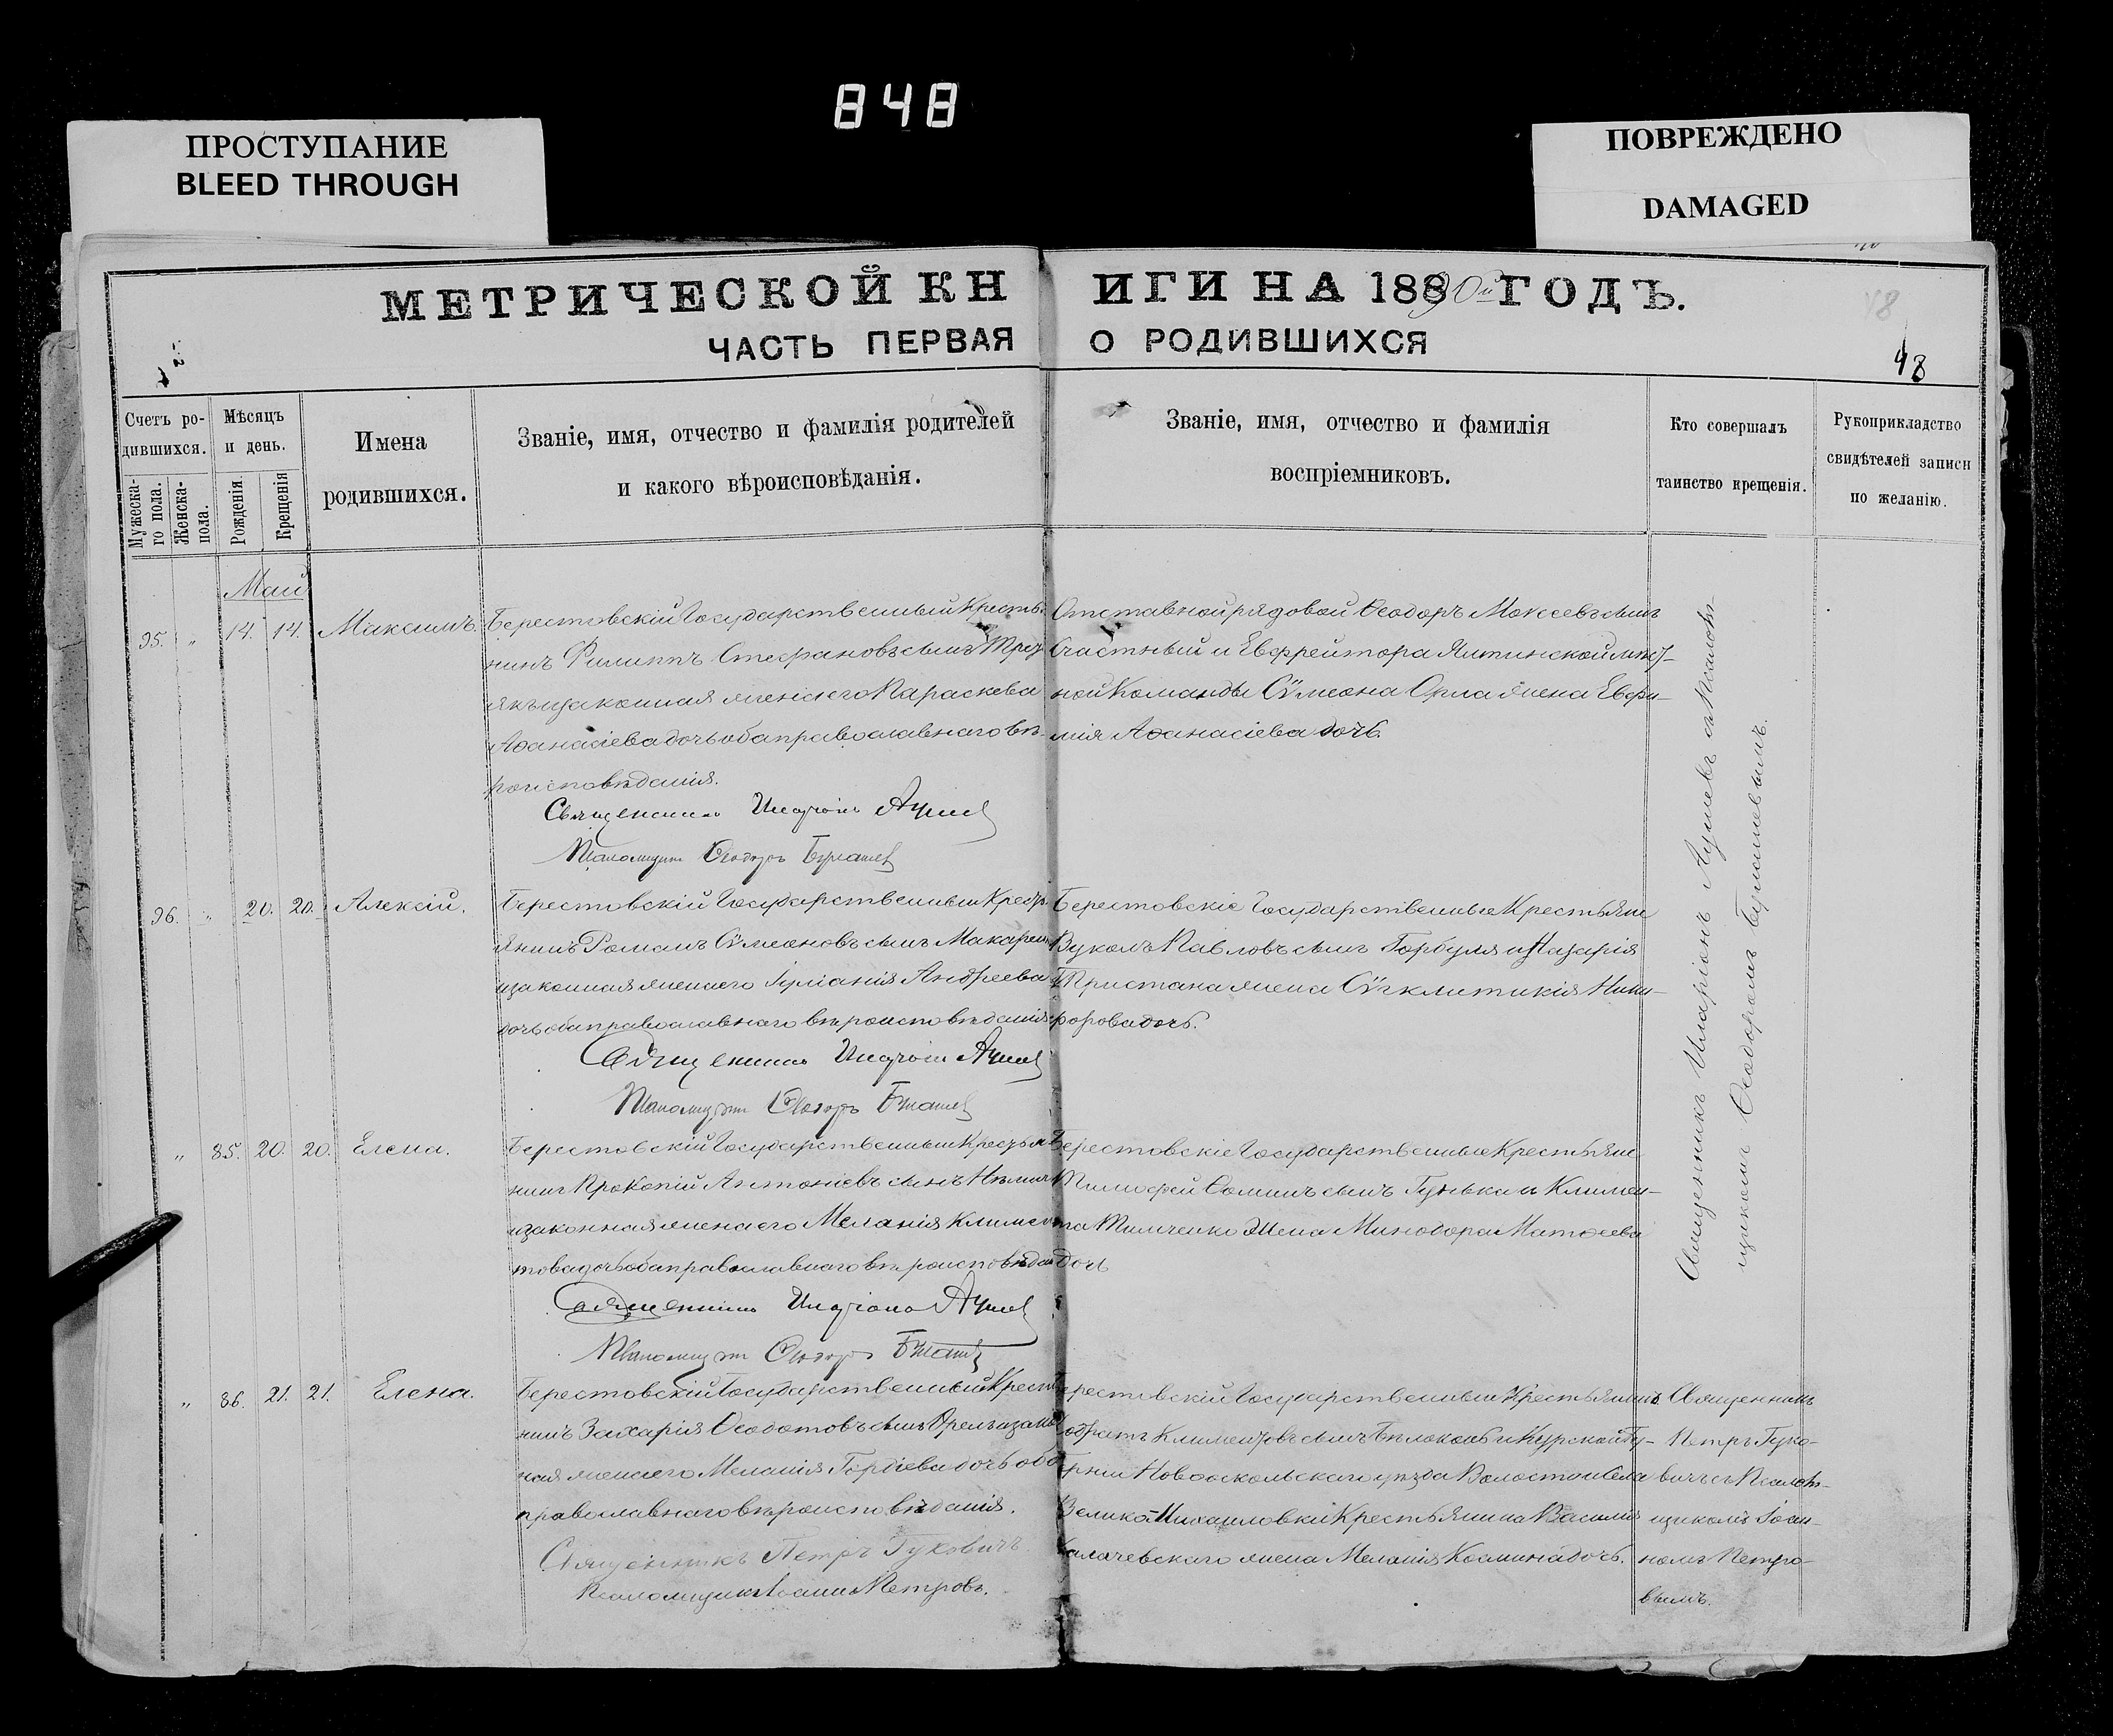 848
ПРОСТУПАНИЕ
BLEED THROUGH
ПОВРЕЖДЕНО
DAMAGED
МЕТРИЧЕСКОЙ КНИГИ НА 1890й ГОДЪ.
ЧАСТЬ ПЕРВАЯ О РОДИВШИХСЯ
48
48
Счетъ ро-
дившихся.
Мужеска-
го пола.
Женска-
пола.
Мѣсяцъ
и день.
Рожденія.
Крещенія
Имена
родившихся.
Званіе, имя, отчество и фамилія родителей
и какого вѣроисповѣданія.
Званіе, имя, отчество и фамилія
воспріемниковъ.
Кто совершалъ
таинство крещенія.
Рукоприкладство
свидѣтелей записи
по желанію.
Май
95. " 14. 14. Максимъ.
Берестовскій Государственный Кресть-
нинъ Филиппъ Стефановъ сынъ
законная жена его Параскева
Аѳанасіева дочь оба православнаго вѣ-
роисповѣданія.
Священникъ Иларіонъ
Псаломщикъ Ѳеодоръ
Отставной рядовой Ѳеодоръ Мокеевъ сынъ
Счастный и Ефрейтора Ялтинской
ной Команды Сѵмеона Орла жена Евфи-
мія Аѳанасіева дочь.
Священникъ Иларіонъ съ Псалом-
щикомъ Ѳеодоромъ
96. " 20. 20. Алексій.
Берестовскій Государственный Крестъ
янинъ Романъ Сѵмеоновъ сынъ Макарен
и законная жена его Іуліанія Андреева
дочь оба православнаго вѣроисповѣданія.
Священникъ Иларіонъ
Псаломщикъ Ѳеодоръ
Берестовскіе Государственные Крестьяне
Вуколъ Павловъ сынъ Горбуля и Назарія
Тристана жена Сѵгклитикія Ники-
форова дочь.
" 85. 20. 20. Елена.
Берестовскій Государственный Крестья
нинъ Прокопій Антоніевъ сынъ
и законная жена его Меланія Климен
това дочь оба православнаго вѣроисповѣдан
Священникъ Иларіонъ
Псаломщикъ Ѳеодоръ
Берестовскіе Государственные Крестьяне
Тимофей Ѳоминъ сынъ Гунька и Климен-
та Тимченко Жена Минодора Матѳеева
дочь
" 86. 21. 21. Елена.
Берестовскій Государственный Кресть
нинъ Захарія Ѳеодотовъ сынъ Орелъ и закон
ная жена его Меланія Гордіева дочь оба
православнаго вѣроисповѣданія.
Священникъ Петръ Гуковичъ
Псаломщикъ Іоаннъ Петровъ.
Берестовскій Государственный Крестьянинъ
Климентовъ сынъ Бѣлоконь и Курской Гу-
берніи Новооскольскаго уѣзда Волости и Села
Велико-Михайловки Крестьянина Василія
Калачевскаго жена Меланія Космина дочь.
Священникъ
Петръ Гуко-
вичъ съ Псалом-
щикомъ Іоан-
номъ Петро-
вымъ.